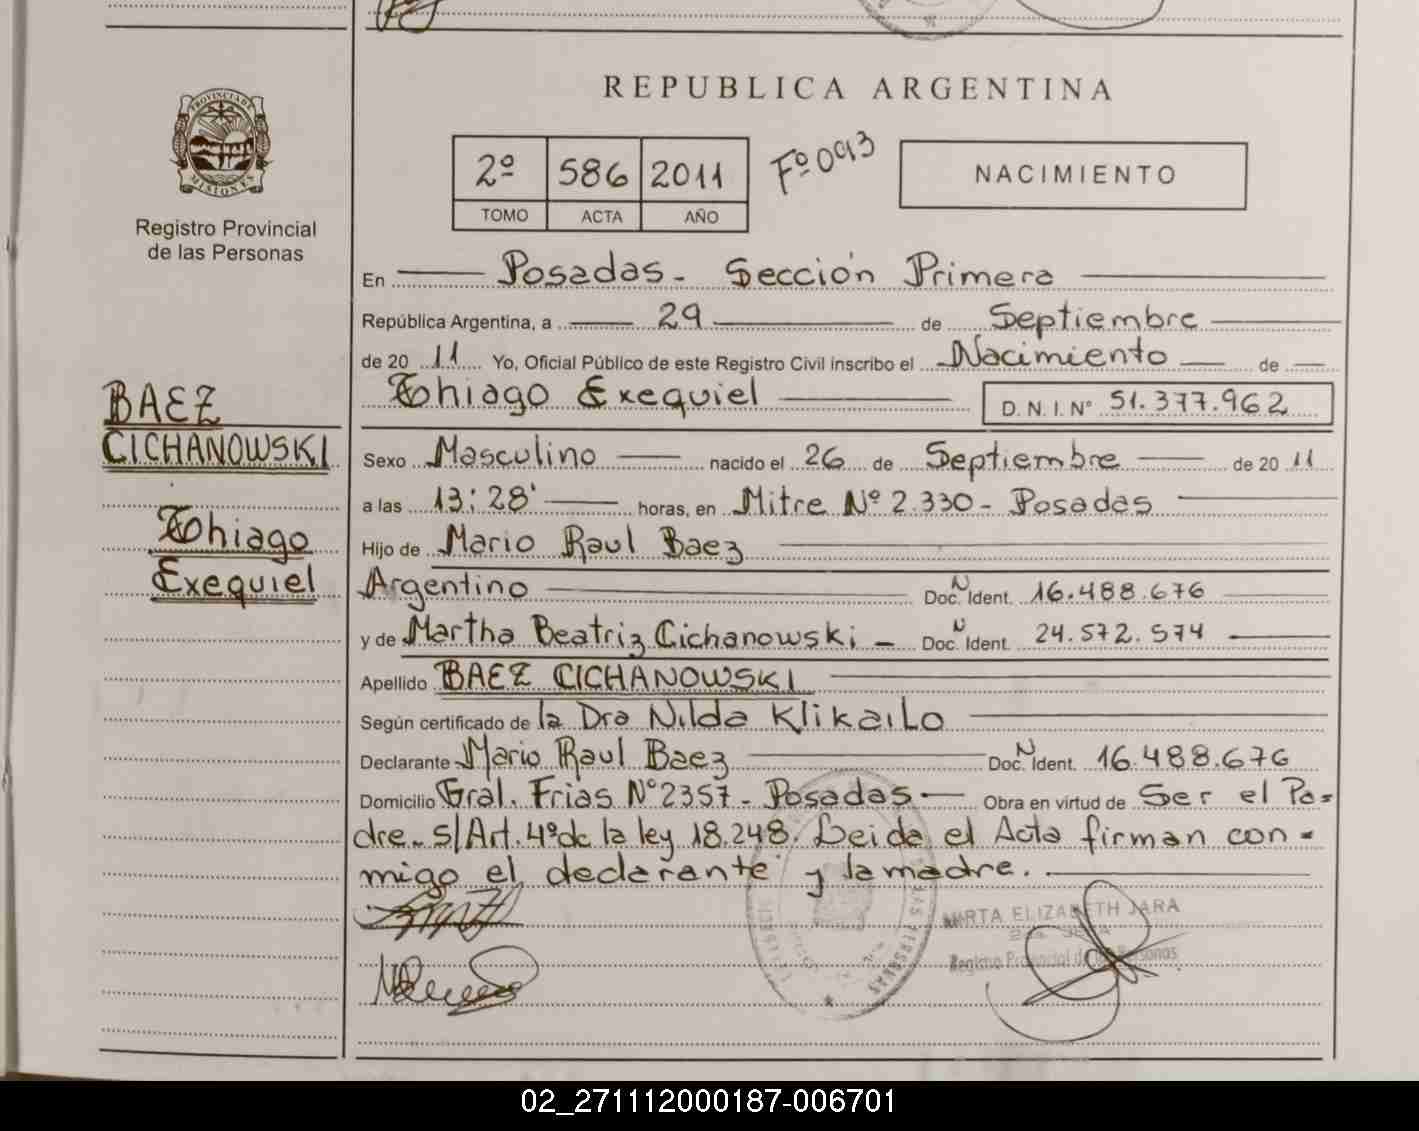 REPUBLICA ARGENTINA
PROVINCIA DE
MISIONES
Registro Provincial
de las Personas
2º 586 2011
TOMO ACTA AÑO
Fº 093
NACIMIENTO
En Posadas - Sección Primera
República Argentina, a 29 de Septiembre
de 20 11 Yo, Oficial Público de este Registro Civil inscribo el Nacimiento de
Thiago Exequiel D.N.I. Nº 51.377.962
BAEZ
CICHANOWSKI
Thiago
Exequiel
Sexo Masculino nacido el 26 de Septiembre de 20 11
a las 13:28' horas, en Mitre Nº 2.330 - Posadas
Hijo de Mario Raul Baez
Argentino Doc. N Ident. 16.488.676
y de Martha Beatriz Cichanowski - Doc. N Ident. 24.572.574
Apellido BAEZ CICHANOWSKI
Según certificado de la Dra Nilda Klikailo
Declarante Mario Raul Baez Doc. N Ident. 16.488.676
Domicilio Gral. Frias N° 2357 - Posadas - Obra en virtud de Ser el Pa=
dre. S/Art. 4º de la ley 18.248. Leida el Acta firman con=
migo el declarante y la madre.
MIRTA ELIZABETH JARA
Registro Provincial de las Personas
LAS PERSONAS
02_271112000187-006701